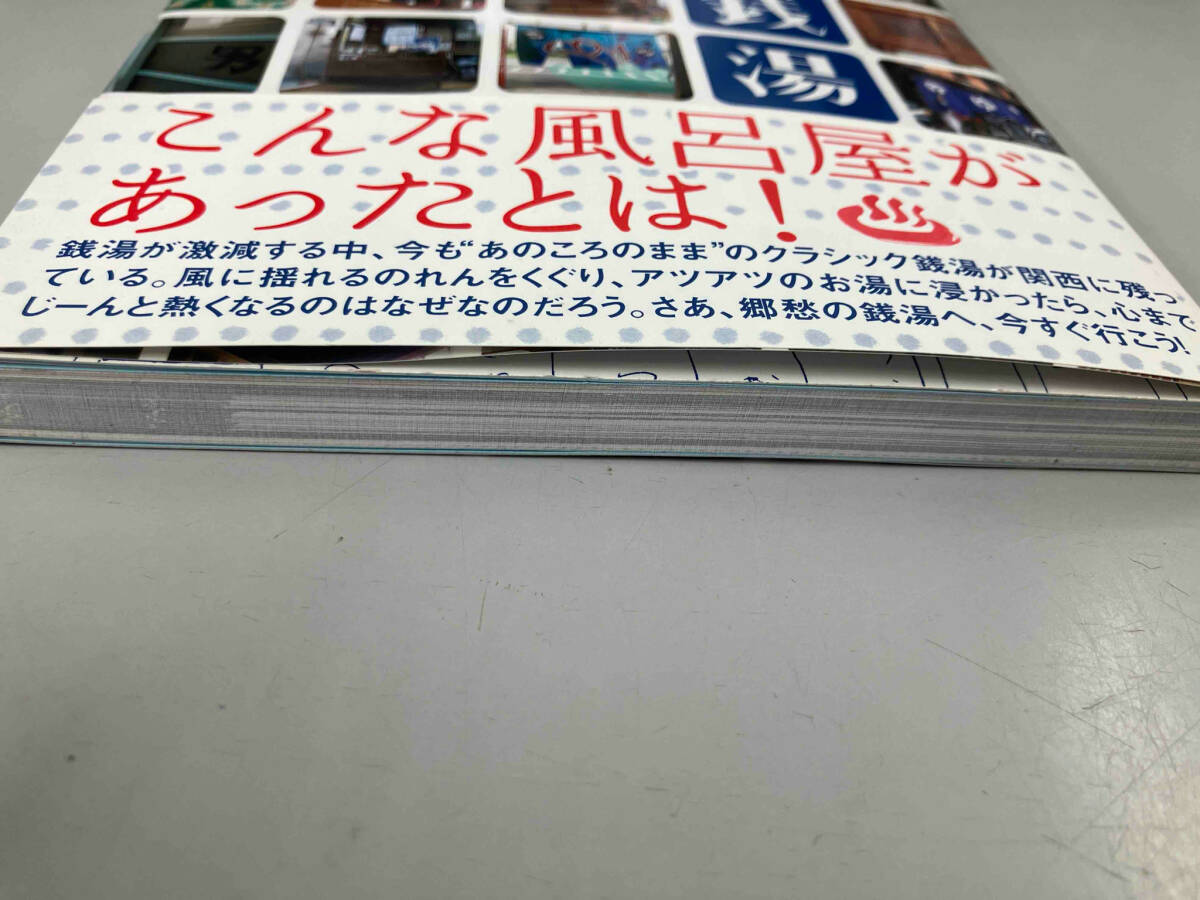 銭
湯
男
こんな風呂屋が
あったとは!
銭湯が激減する中、今も“あのころのまま”のクラシック銭湯が関西に残っ
ている。風に揺れるのれんをくぐり、アツアツのお湯に浸かったら、心まで
じーんと熱くなるのはなぜなのだろう。さあ、郷愁の銭湯へ、今すぐ行こう!